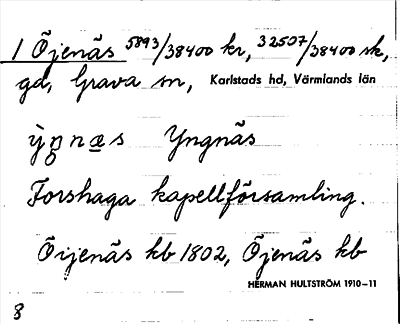 1 Öjenäs 5893/38400 kr, 32507/38400 sk,
gd, Grava sn, Karlstads hd, Värmlands län
Yngnäs
Forshaga kapellförsamling.
Öijenäs kb 1802, Öjenäs kb
HERMAN HULTSTRÖM 1910-11
8